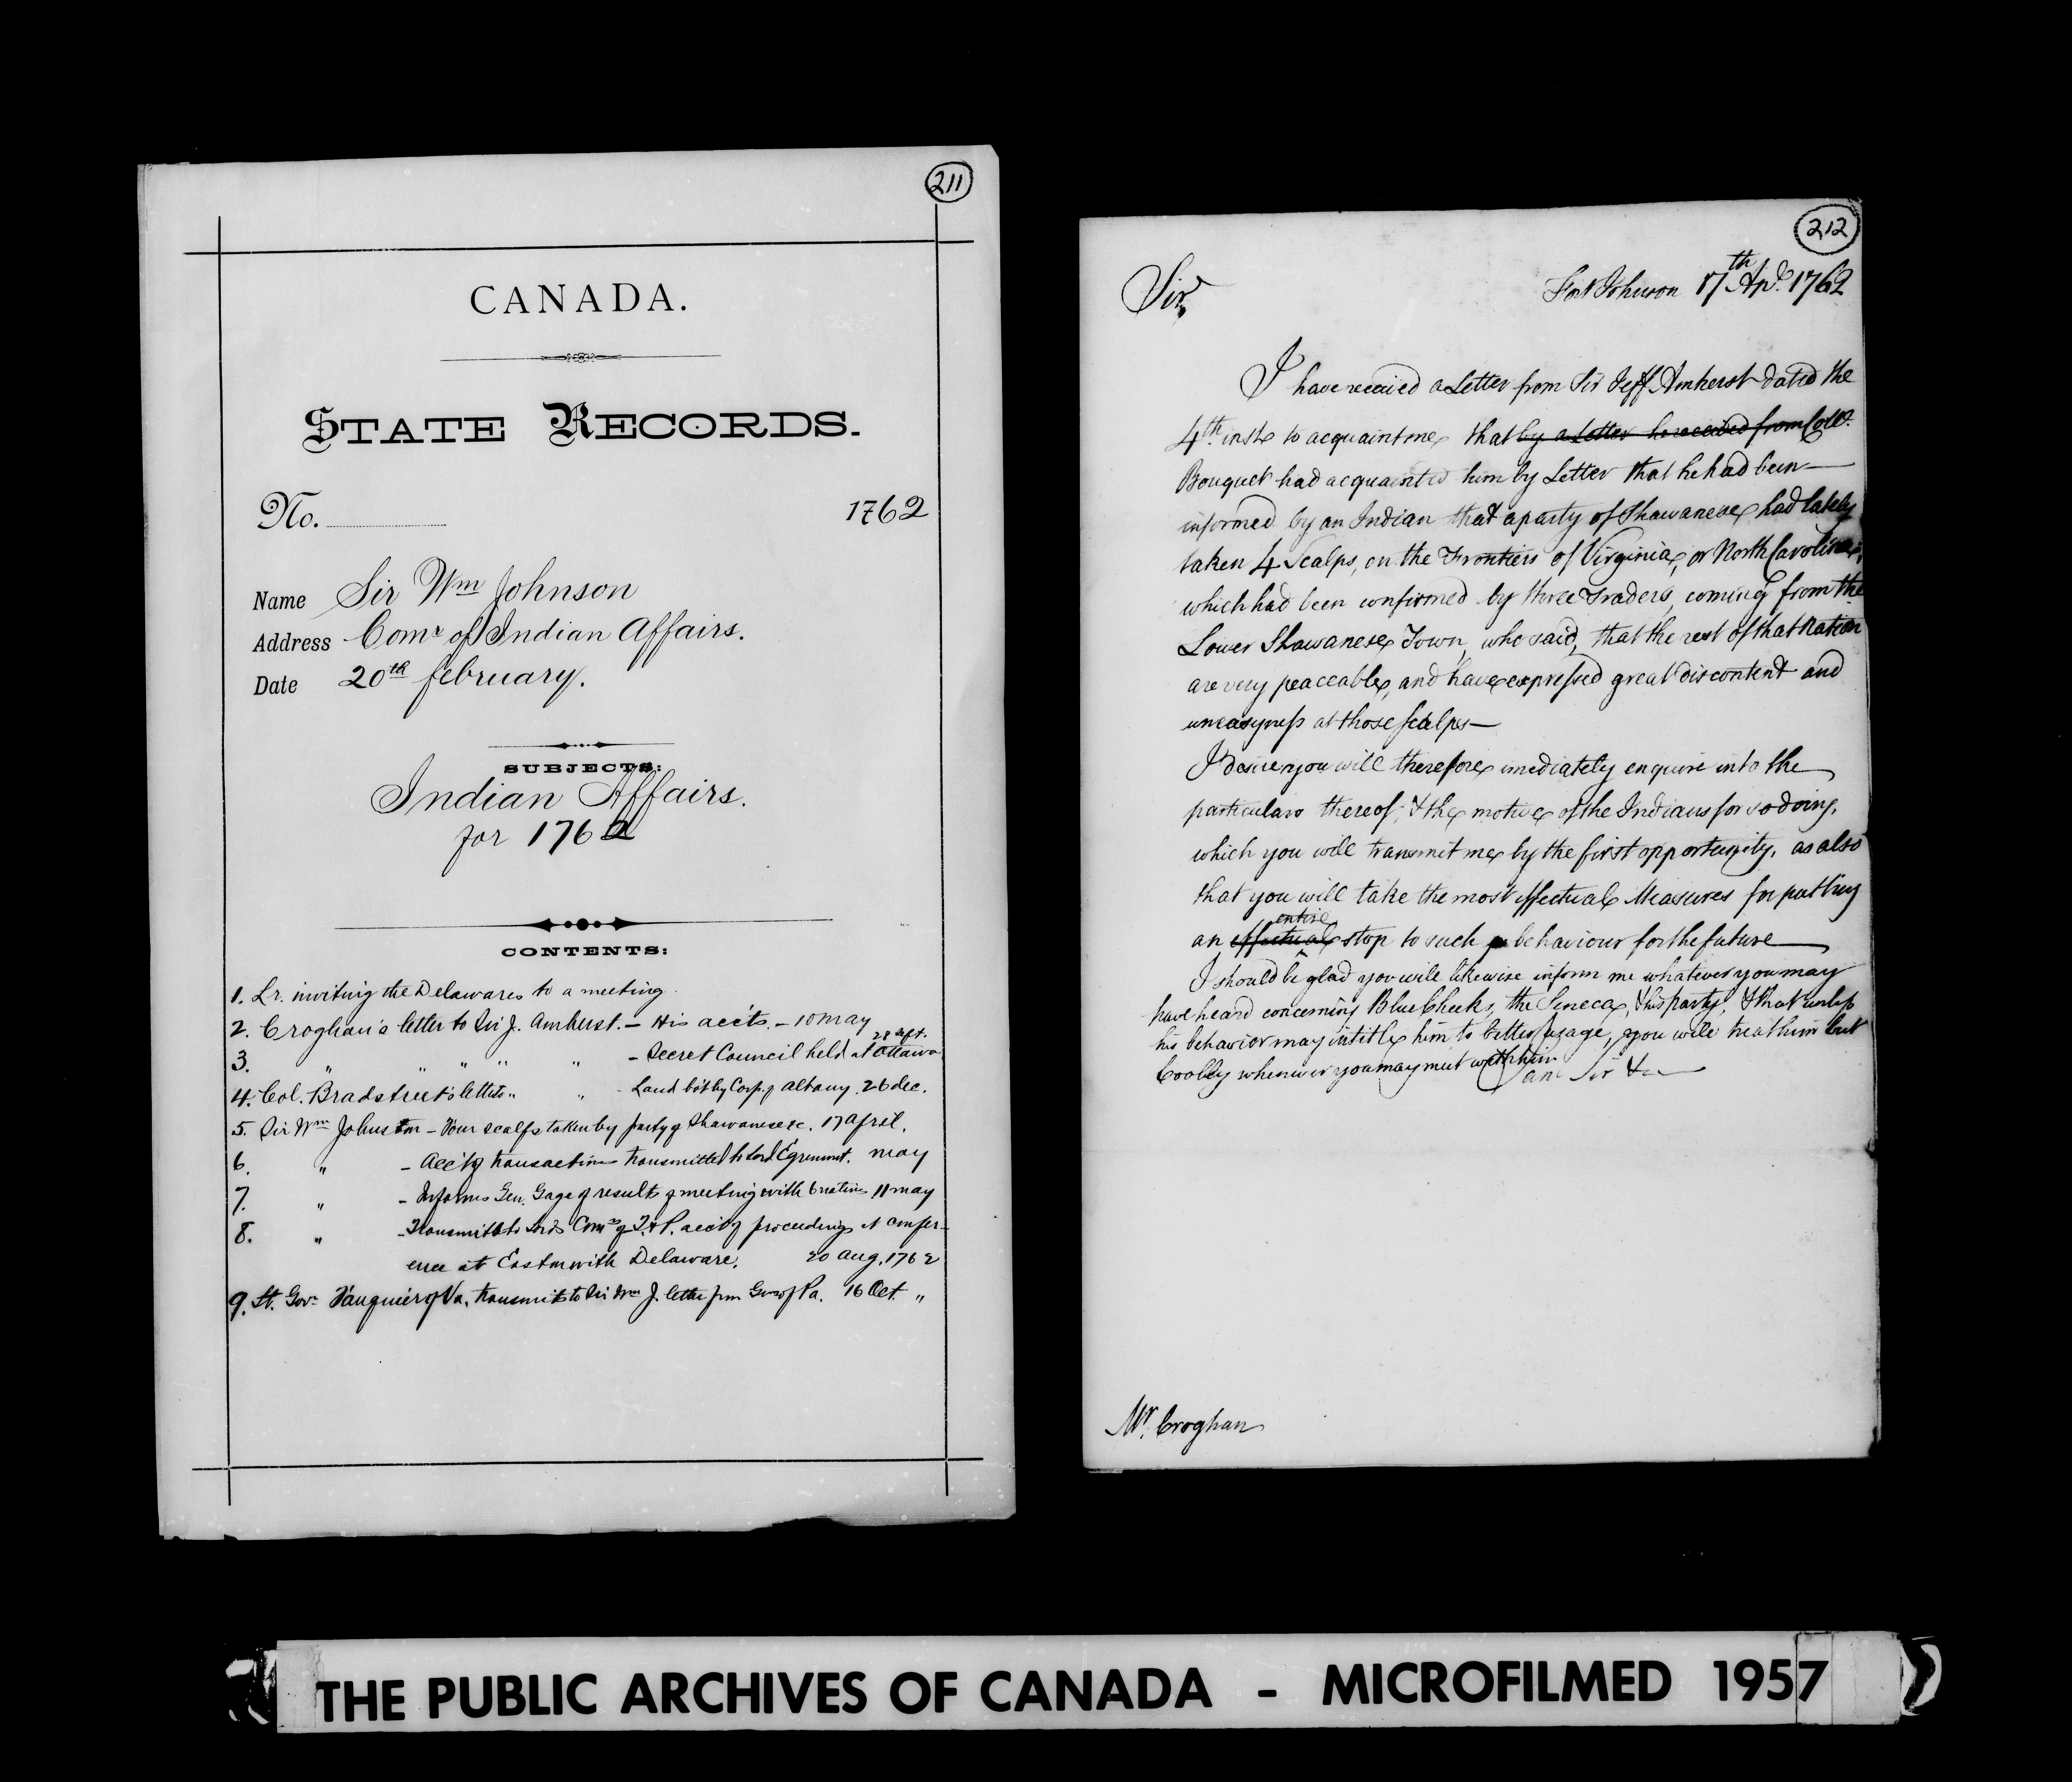 211
CANADA.
STATE RECORDS.
No. 1762
Name Sir Wm Johnson
Address Comr of Indian Affairs.
Date 20th february.
SUBJECTS:
Indian Affairs.
for 1762
CONTENTS:
1. Lr. inviting the Delawares to a meeting.
2. Croghan's letter to Sir J. Amherst. - His acc'ts. - 10 may
28 Sept.
3. " " " " " - Secret Council held at Ottawa
4. Col. Bradstreet's letter to " " Land bo't by Corp. of Albany. 26 dec.
5. Sir Wm Johnston - Four scalps taken by party of Shawanese &c. 17 April.
6. " - Acc't of transactions transmitted to Lord Egremont. may
7. " - Informs Gen. Gage of results of meeting with 6 nations 11 may
8. " - Transmits to Lords Comrs of T. & P. acc't of proceedings at confer-
ence at Easton with Delaware. 20 Aug. 1762
9. Lt. Govr Fauquier of Va. transmits to Sir Wm J. letter from Govr of Pa. 16 Oct. "
212
Sir,
Fort Johnson 17th Apl. 1762
I have received a Letter from Sir Jeff. Amherst dated the
4th inst. to acquaint me, that by a Letter he received from Coll.
Bouquet had acquainted him by Letter that he had been
informed by an Indian that a party of Shawanese had lately
taken 4 Scalps, on the Frontiers of Virginia, or North Carolina,
which had been confirmed by three Traders, coming from the
Lower Shawanese Town, who said, that the rest of that Nation
are very peaceable, and have expressed great discontent and
uneasyness at those scalps—
I desire you will therefore imediately enquire into the
particulars thereof, & the motive of the Indians for so doing,
which you will transmit me by the first opportunity, as also
that you will take the most effectual Measures for putting
entire
an effectual stop to such behaviour for the future
I should be glad you will likewise inform me whatever you may
have heard concerning Blue Cheeks, the Seneca, & his party, & that unless
his behavior may intitle him to better usage, you will treat him but
Coolly whenever you may meet with him
I am Sir &c
Mr. Croghan
THE PUBLIC ARCHIVES OF CANADA - MICROFILMED 1957